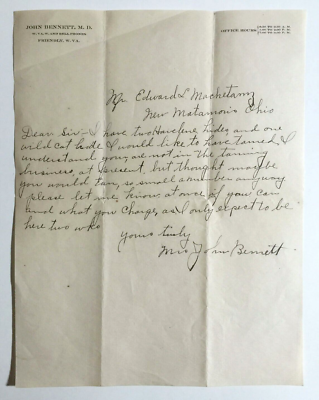 JOHN BENNETT, M. D.
FRIENDLY, W. VA.
OFFICE HOURS
Mr Edward L Machetanz
New Matamoris Ohio
Dear Sir - I have two hides and one
wild cat hide I would like to have taned, I
understand you are not in the taning
business at present, but thought maybe
you would tan, so small a number anyway
please let me, know at once if you can
and what you charge, as I only expect to be
here two wks
Yours truly
Mrs John Bennett